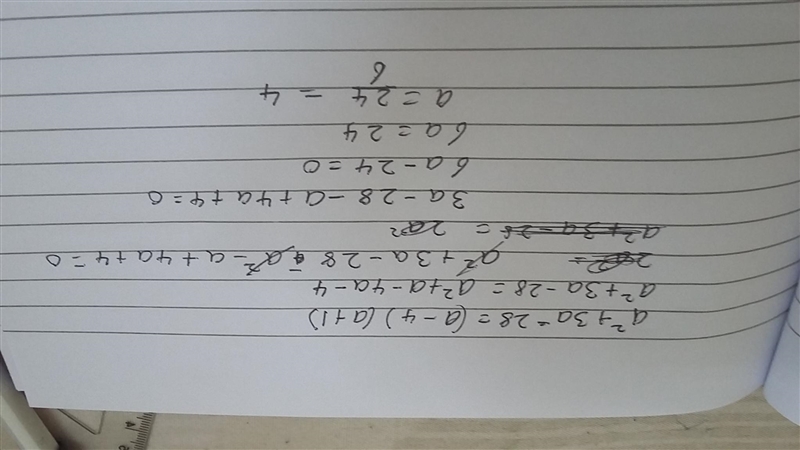 a²+3a-28=(a-4)(a+1)
a²+3a-28=a²+a-4a-4
a²+3a-28-a²-a+4a+4=0
a²+3a-28 = 2a²
3a-28-a+4a+4=0
6a-24=0
6a=24
a=24/6=4